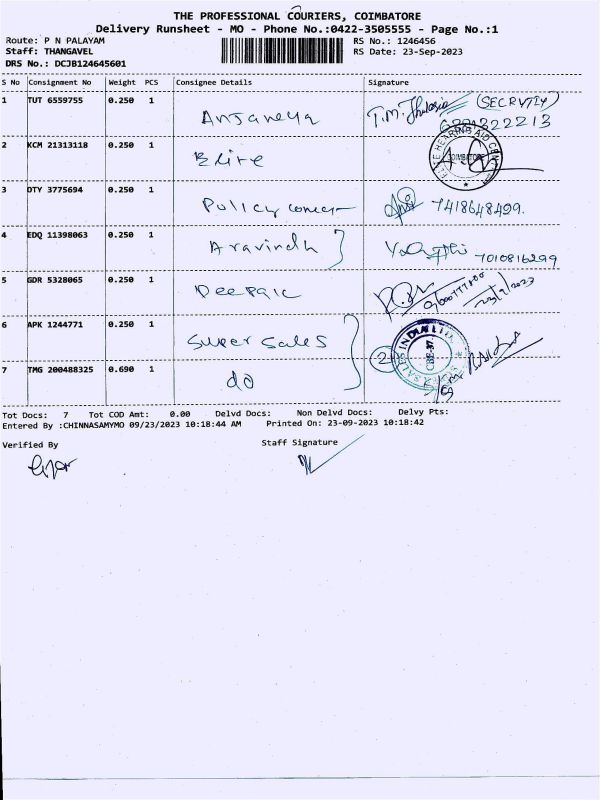 THE PROFESSIONAL COURIERS, COIMBATORE
Delivery Runsheet - MO - Phone No.:0422-3505555 - Page No.:1
Route: P N PALAYAM RS No.: 1246456
Staff: THANGAVEL RS Date: 23-Sep-2023
DRS No.: DCJB124645601
S No Consignment No Weight PCS Consignee Details Signature
1 TUT 6559755 0.250 1 Anjaneya (SECRVTIY)
2 KCM 21313118 0.250 1 Elite
ELITE HEARING AID CENTRE
COIMBATORE
3 OTY 3775694 0.250 1 Policy 7418648499.
4 EDQ 11398063 0.250 1 Aravindh 7010816299
5 GDR 5328065 0.250 1 Deepak
6 APK 1244771 0.250 1 Super Sales
2
CBE-37
7 TMG 200488325 0.690 1 do
Tot Docs: 7 Tot COD Amt: 0.00 Delvd Docs: Non Delvd Docs: Delvy Pts:
Entered By :CHINNASAMYMO 09/23/2023 10:18:44 AM Printed On: 23-09-2023 10:18:42
Verified By Staff Signature